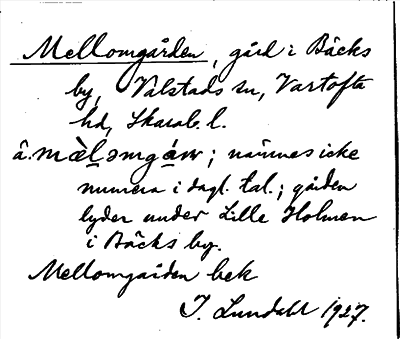 Mellomgården, gård i Bäcks
by, Valstads sn, Vartofta
hd, Skarab. l.
å. mæ̀l̬əmgáɳ; nämnes icke
numera i dagl. tal.; gården
lyder under Lille Holmen
i Bäcks by.
Mellomgården bek
I. Lundahl 1927.